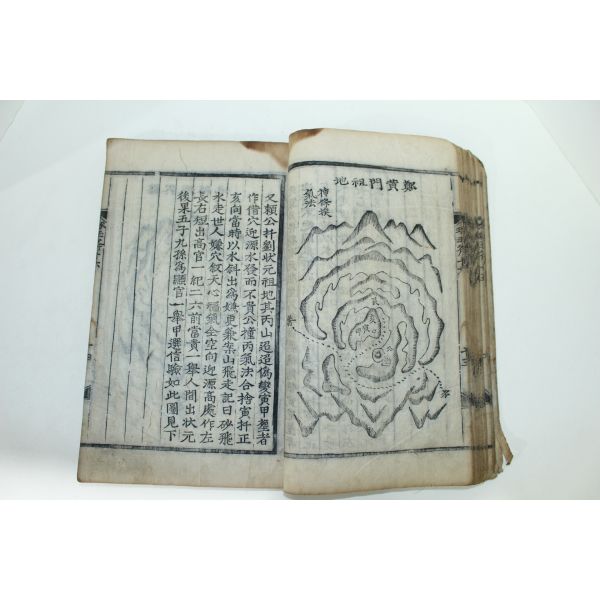 鄭黃門祖地
又賴公扦劉狀元祖地其丙山迢迢偽變寅甲壟者
作借穴迎源水發而不貴公撞丙氣法合捨寅扦正
亥向當時以水斜出為嫌更兼案山飛走記曰砂飛
水走世人嫌穴叙天心福氣全空向迎源高處作左
長右短出高官一紀二六前當貴一舉人間出狀元
後果五子九孫為顯官一舉甲選信驗如此圖見下